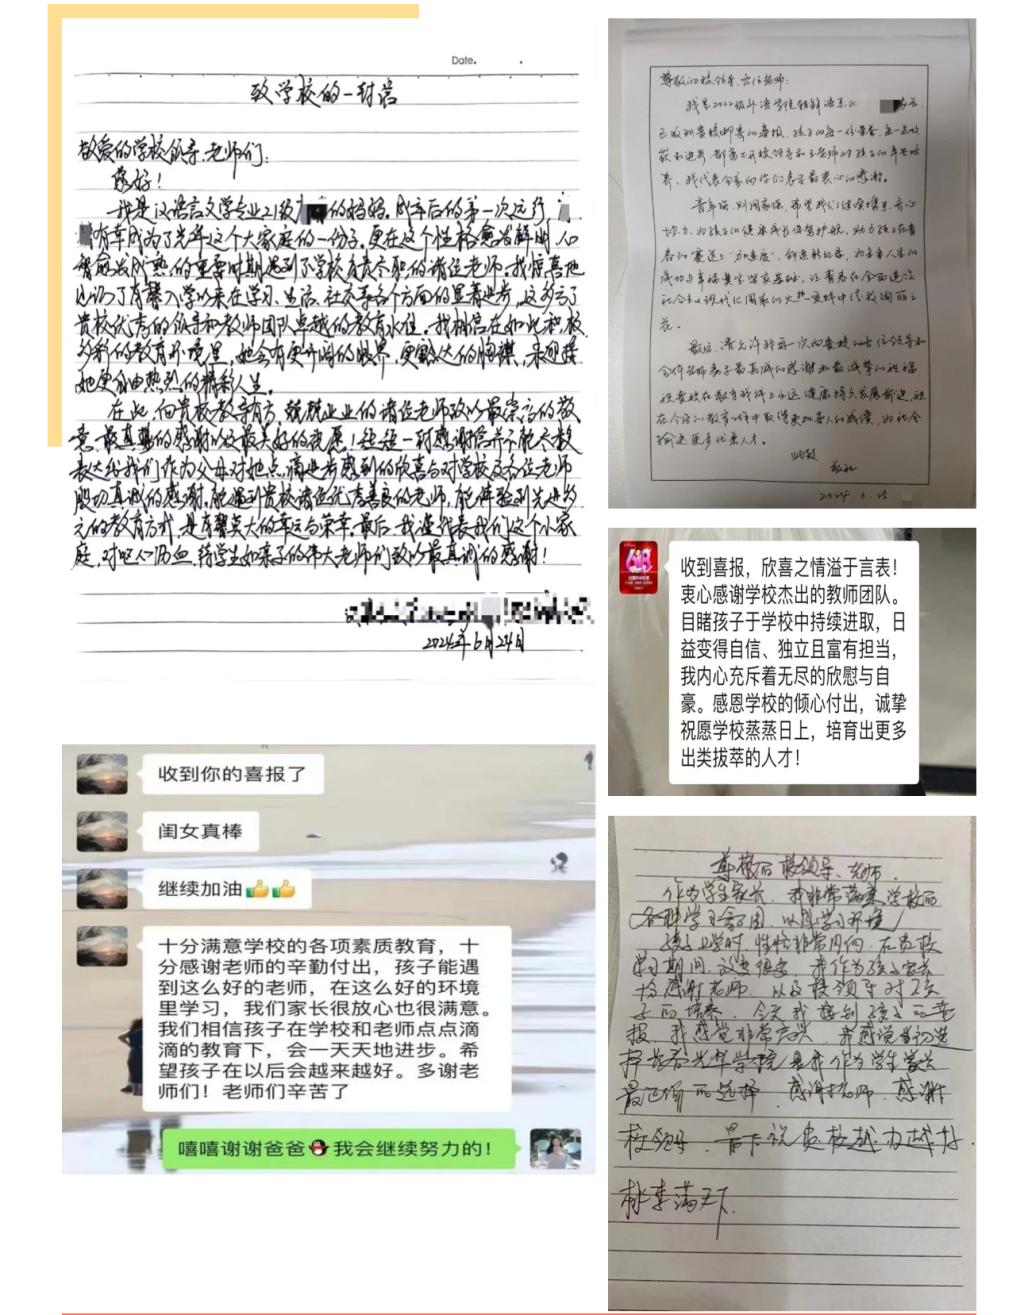 Date.
致学校的一封信
敬爱的学校领导、老师们:
您好!
我是汉语言文学专业21级 的妈妈。成年后的第一次远行
有幸成为了光华这个大家庭的一份子。更在这个性格愈发鲜明、心
智愈发成熟的重要时期遇到了学校负责尽职的诸位老师。我惊喜地
见识了有馨入学以来在学习、生活、社交等各个方面的显著进步,这多亏了
贵校优秀的领导和教师团队卓越的教育水准。我相信在如此积极
多彩的教育环境里,她会有更开阔的眼界、更豁达的胸襟,来迎接
她更自由热烈的精彩人生。
在此,向贵校教育有方、兢兢业业的诸位老师致以最崇高的敬
意、最真挚的感谢以及最美好的祝愿!纸短 一封感谢信并不能太够
表达出我们作为父母对她点滴进步感到的欣喜与对学校及各位老师
殷切真诚的感谢。能遇到贵校诸位优秀善良的老师,能体验到先进多
元的教育方式,是有馨莫大的幸运与荣幸。最后,我谨代表我们这个小家
庭,对呕心沥血、待学生如亲子的伟大老师们致以最真诚的感谢!
2024年6月24日
尊敬的校领导、各位老师:
我是2022级外语学院朝鲜语系的 家长,
已收到贵校邮寄的喜报。孩子的每一份荣誉、每一点收
获和进步,都离不开校领导和老师对孩子的辛苦培
养。我代表全家向你们表示最衷心的感谢。
青年强,则国家强。希望我们继续携手、齐心
协力,为孩子的健康成长保驾护航,助力孩子在青
春的赛道上“加速度”,创造新纪录,为未来人生的
成功与幸福奠定坚实基础,让青春在全面建设
社会主义现代化国家的火热实践中绽放绚丽之
花。
最后,请允许我再一次向贵校的各位领导和
全体老师表示最真诚的感谢和最诚挚的祝福。
祝贵校在教育战线上永远健康持久发展前进,祝
在今后的教育工作中取得更加喜人的成绩,为社会
输送更多优秀人才。
此致
敬礼
2024.6.25
收到喜报,欣喜之情溢于言表!
衷心感谢学校杰出的教师团队。
目睹孩子于学校中持续进取,日
益变得自信、独立且富有担当,
我内心充斥着无尽的欣慰与自
豪。感恩学校的倾心付出,诚挚
祝愿学校蒸蒸日上,培育出更多
出类拔萃的人才!
收到你的喜报了
闺女真棒
继续加油👍👍
十分满意学校的各项素质教育,十
分感谢老师的辛勤付出,孩子能遇
到这么好的老师,在这么好的环境
里学习,我们家长很放心也很满意。
我们相信孩子在学校和老师点点滴
滴的教育下,会一天天地进步。希
望孩子在以后会越来越好。多谢老
师们!老师们辛苦了
嘻嘻谢谢爸爸🐧我会继续努力的!
尊敬的校领导、老师.
作为学生家长,我非常满意学校的
各种学习氛围,以及学习环境
孩子上学时,性格非常内向,在贵校
学习期间,改变很多,我作为孩子家长
十分感谢老师,以及校领导对孩
子的培养,今天我接到孩子的喜
报,我感觉非常高兴,我感觉当初选
择长春光华学院是我作为学生家长
最正确的选择,感谢老师,感谢
校领导,最后祝贵校越办越好.
桃李满天下.